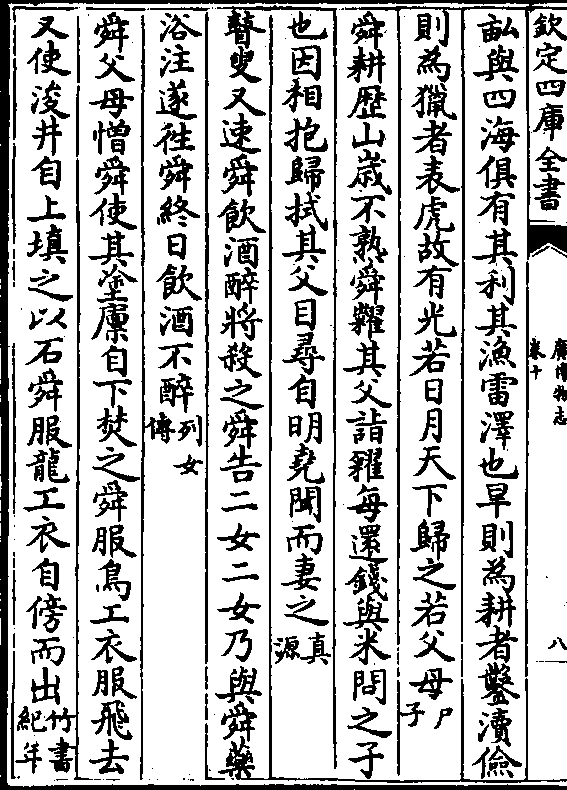 欽定四庫全書
廣博物志
卷十
八
畆與四海俱有其利其漁雷澤也旱則為耕者鑿瀆儉
則為獵者表虎故有光若日月天下歸之若父母尸子
舜耕歴山歳不熟舜糴其父詣糴每還錢與米問之子
也因相抱歸拭其父目尋自明堯聞而妻之真源
瞽叟又速舜飲酒醉將殺之舜告二女二女乃與舜藥
浴注遂徃舜終日飲酒不醉列女傳
舜父母憎舜使其塗廩自下焚之舜服鳥工衣服飛去
又使浚井自上填之以石舜服龍工衣自傍而出竹書紀年